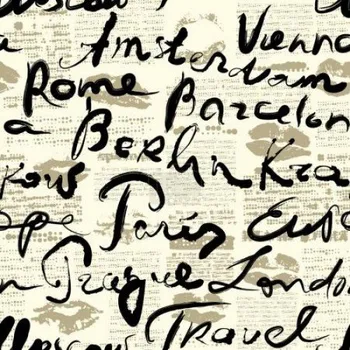 Moscow
a Amsterdam Vienna
Rome Barcelon
a Berlin Kra
kow
ope Paris Euro
n Prague London
Moscow Travel